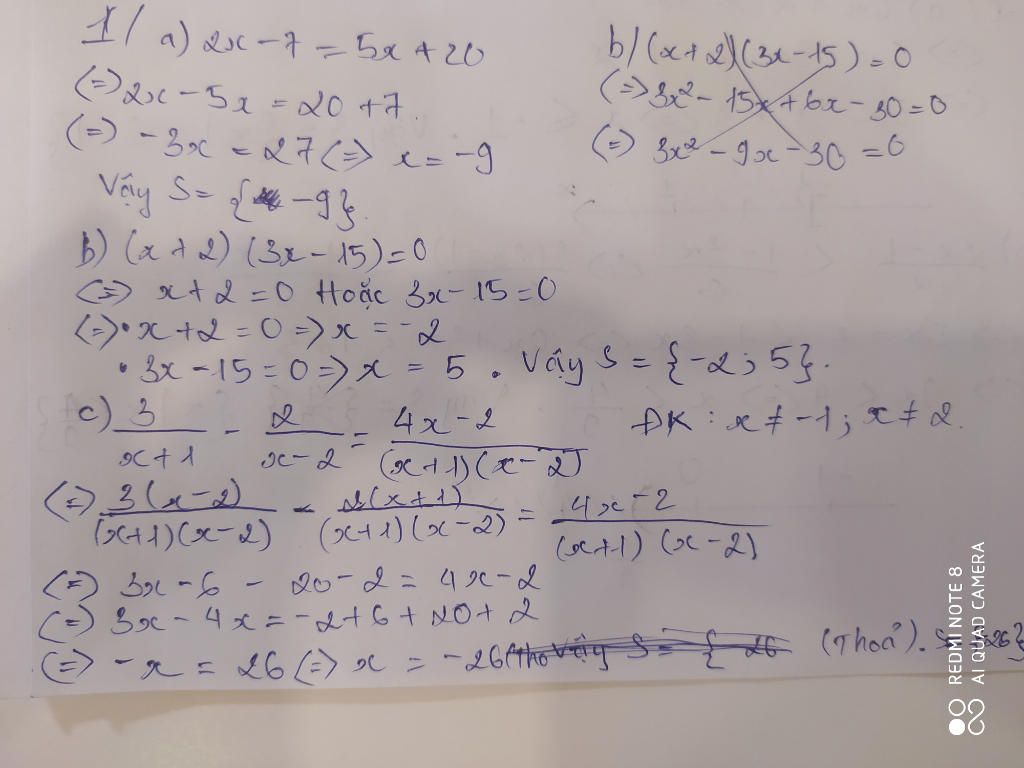 1/ a) 2x - 7 = 5x + 20
(=) 2x - 5x = 20 + 7.
(=) -3x = 27 (=) x = -9
Vậy S = { -9}.
b/ (x + 2)(3x - 15) = 0
(=) 3x² - 15x + 6x - 30 = 0
(=) 3x² - 9x - 30 = 0
b) (x + 2) (3x - 15) = 0
(=) x + 2 = 0 Hoặc 3x - 15 = 0
(=) • x + 2 = 0 => x = -2
• 3x - 15 = 0 => x = 5 . Vậy S = {-2 ; 5}.
c) 3/(x+1) - 2/(x-2) = (4x-2)/((x+1)(x-2)) ĐK : x ≠ -1 ; x ≠ 2.
(=) 3(x-2)/((x+1)(x-2)) - 2(x+1)/((x+1)(x-2)) = (4x-2)/((x+1)(x-2))
(=) 3x - 6 - 20 - 2 = 4x - 2
(=) 3x - 4x = -2 + 6 + 20 + 2
(=) -x = 26 (=) x = -26 (Tho Vậy S = { 26 (Thoả).
REDMI NOTE 8
AI QUAD CAMERA